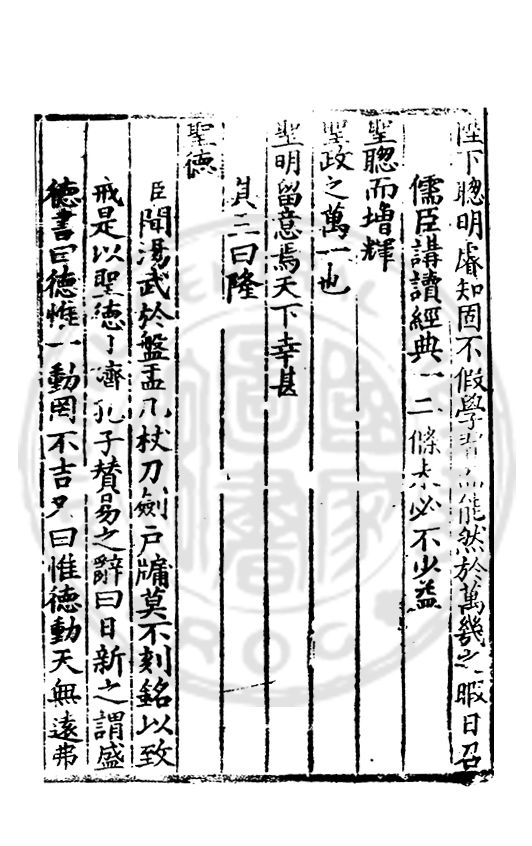 陛下聰明睿知固不假學而能然於萬幾之暇日召
儒臣講讀經典一二條未必不少益
聖聰而增輝
聖政之萬一也
聖明留意焉天下幸甚
其三曰隆
聖德
臣聞湯武於盤盂几杖刀劍戶牖莫不刻銘以致
戒是以聖德日躋孔子賛易之辭曰日新之謂盛
德書曰德惟一動罔不吉又曰惟德動天無遠弗